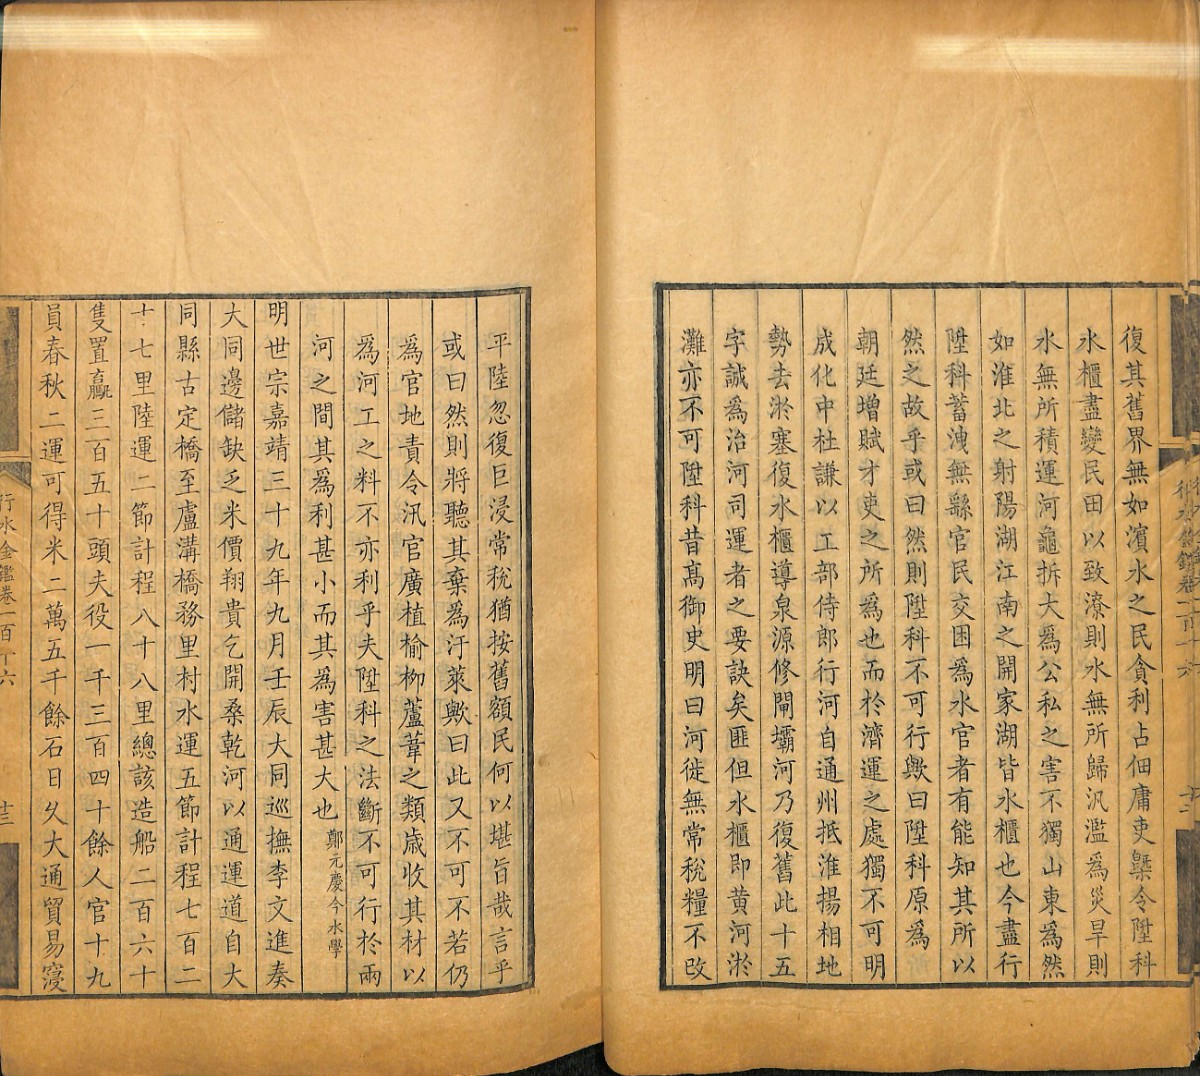 復其舊界無如濱水之民貪利占佃庸吏槩令陞科
水櫃盡變民田以致潦則水無所歸汎濫為災旱則
水無所積運河龜拆大為公私之害不獨山東為然
如淮北之射陽湖江南之開家湖皆水櫃也今盡行
陞科蓄洩無繇官民交困為水官者有能知其所以
然之故乎或曰然則陞科不可行歟曰陞科原為
朝廷增賦才吏之所為也而於濟運之處獨不可明
成化中杜謙以工部侍郎行河自通州抵淮揚相地
勢去淤塞復水櫃導泉源修閘壩河乃復舊此十五
字誠為治河司運者之要訣矣匪但水櫃即黄河淤
灘亦不可陞科昔髙御史明曰河徙無常税糧不改
平陸忽復巨浸常税猶按舊額民何以堪旨哉言乎
或曰然則將聽其棄為汙萊歟曰此又不可不若仍
為官地責令汛官廣植榆柳蘆葦之類歲收其材以
為河工之料不亦利乎夫陞科之法斷不可行於兩
河之間其為利甚小而其為害甚大也鄭元慶今水學
明世宗嘉靖三十九年九月壬辰大同巡撫李文進奏
大同邊儲缺乏米價翔貴乞開桑乾河以通運道自大
同縣古定橋至盧溝橋務里村水運五節計程七百二
十七里陸運二節計程八十八里總該造船二百六十
隻置驘三百五十頭夫役一千三百四十餘人官十九
員春秋二運可得米二萬五千餘石日久大通貿易寖
行水金鑑卷一百十六